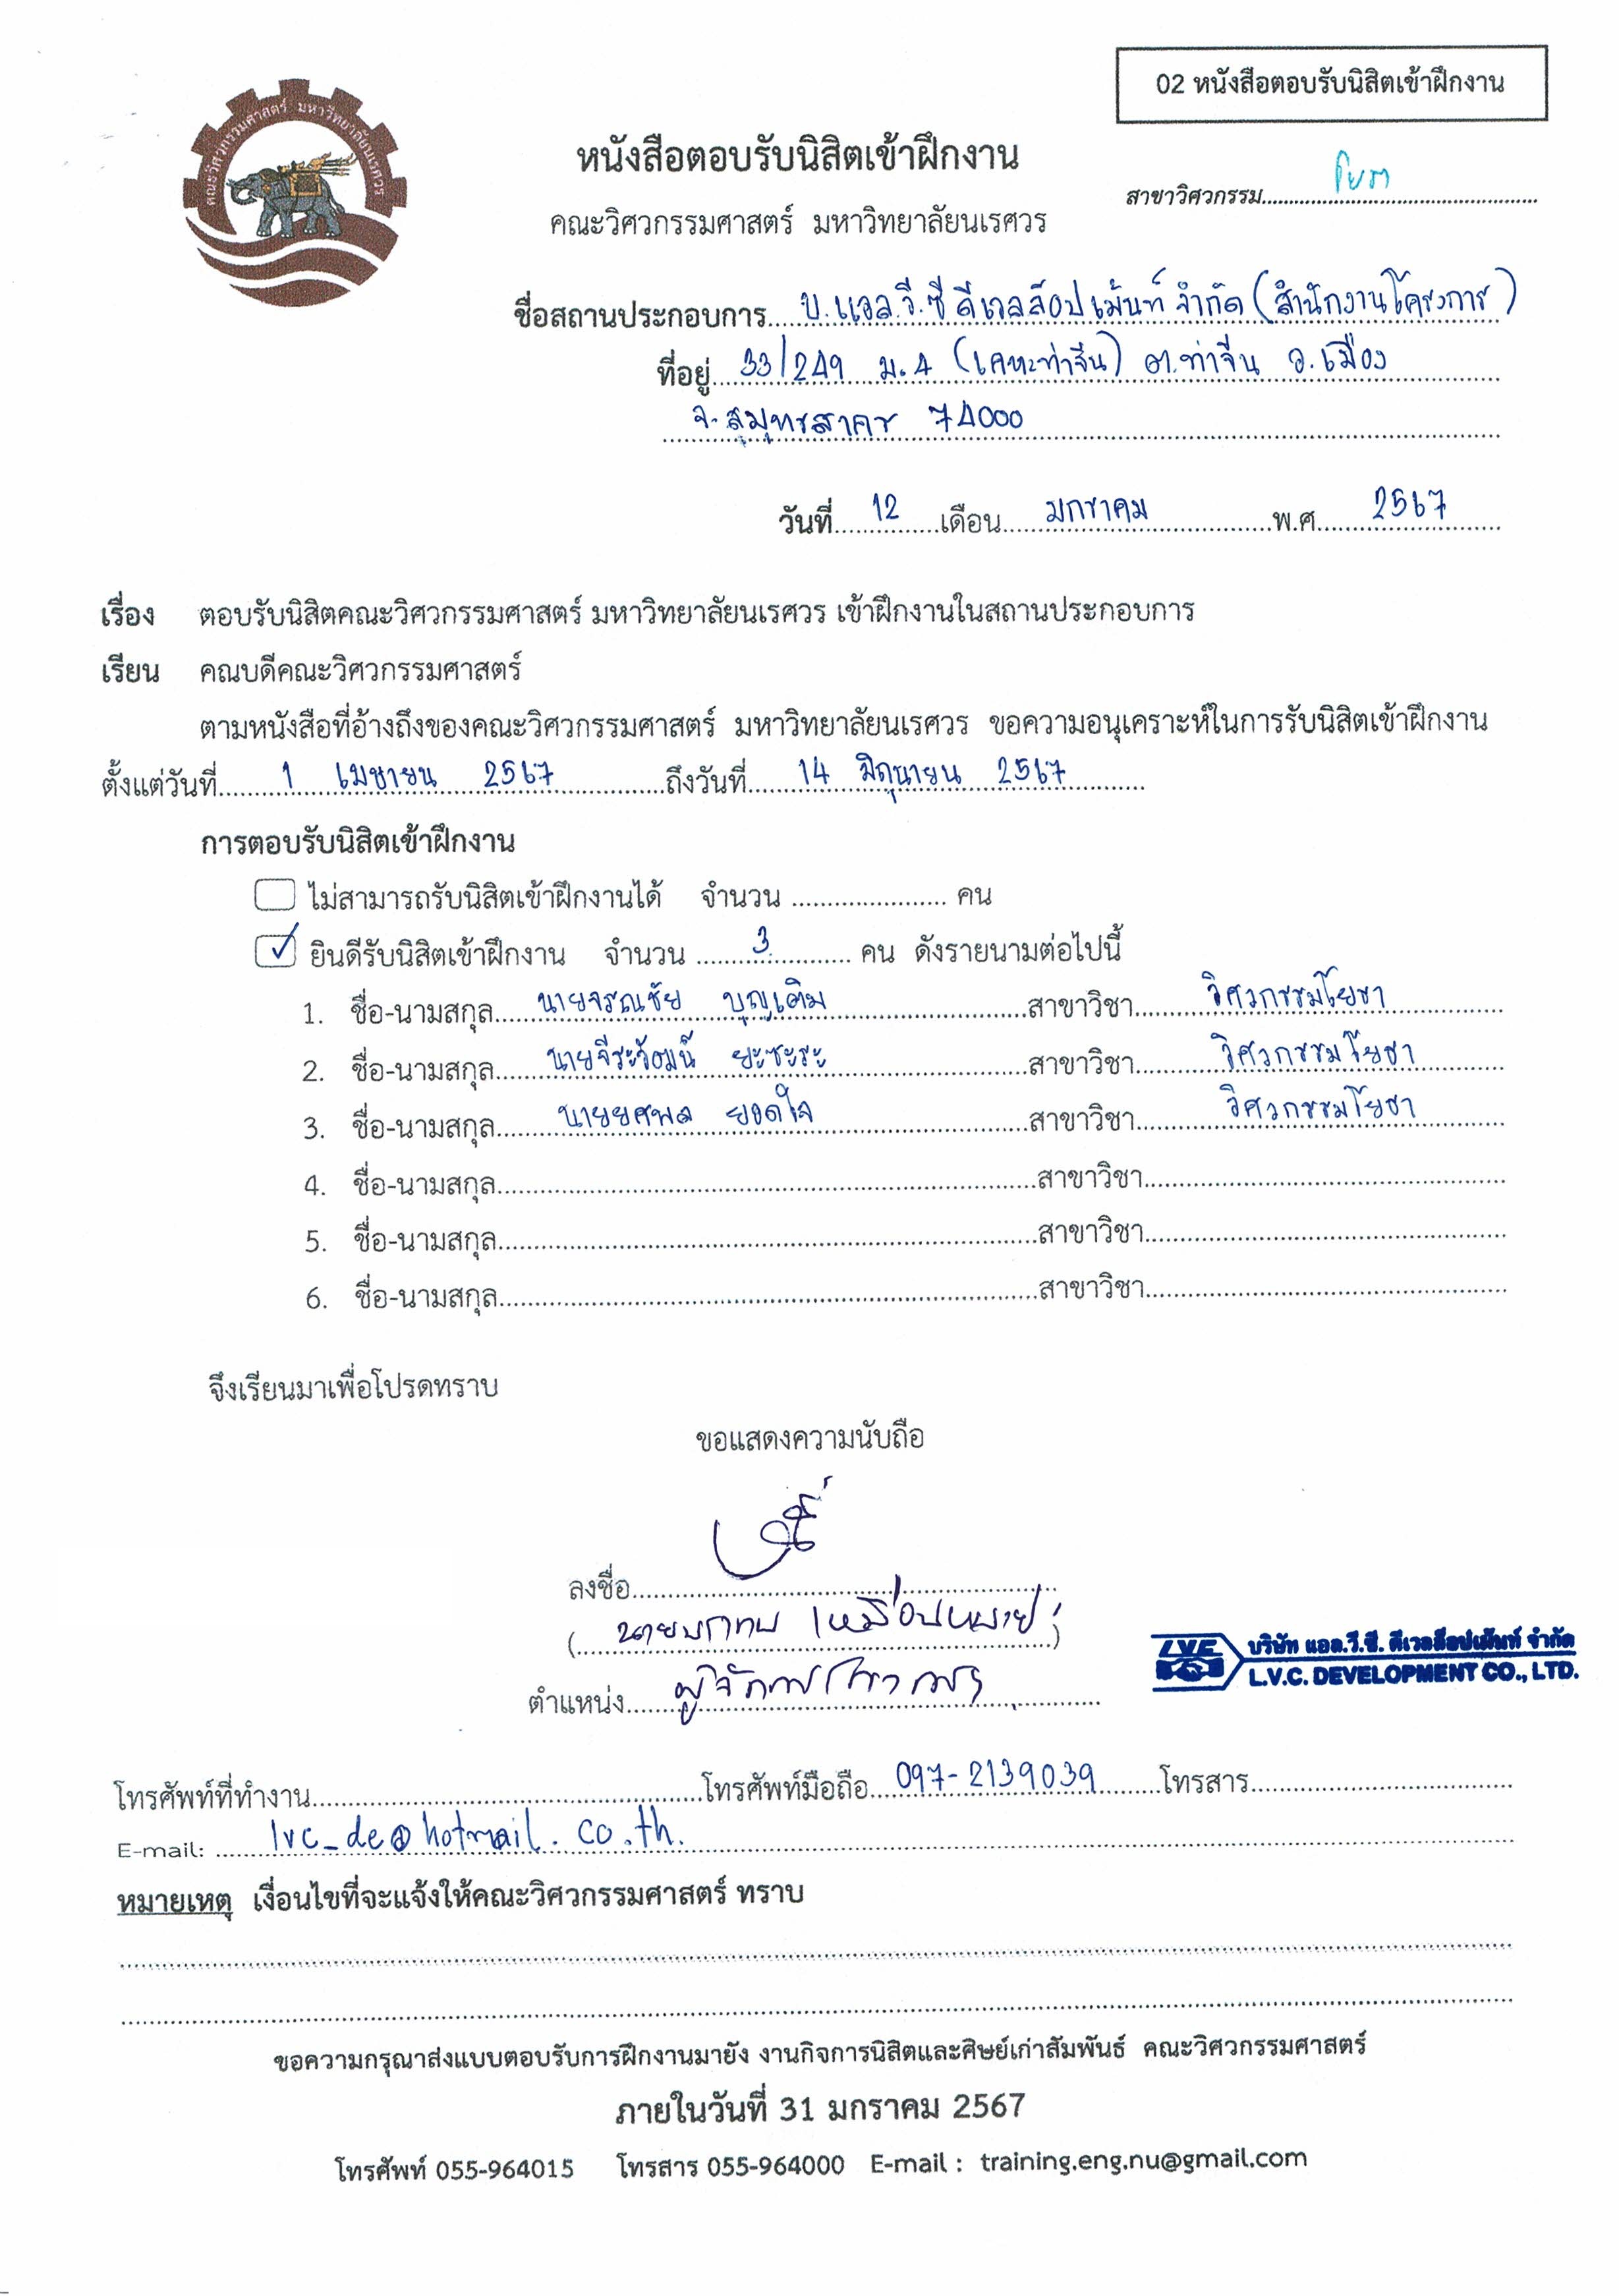 02 หนังสือตอบรับนิสิตเข้าฝึกงาน
คณะวิศวกรรมศาสตร์ มหาวิทยาลัยนเรศวร
หนังสือตอบรับนิสิตเข้าฝึกงาน
สาขาวิศวกรรม โยธา
คณะวิศวกรรมศาสตร์ มหาวิทยาลัยนเรศวร
ชื่อสถานประกอบการ บ.แอล.วี.ซี ดีเวลล็อปเม้นท์ จำกัด (สำนักงานโครงการ)
ที่อยู่ 33/249 ม.4 (เคหะท่าจีน) ต.ท่าจีน อ.เมือง
จ.สมุทรสาคร 74000
วันที่ 12 เดือน มกราคม พ.ศ. 2567
เรื่อง ตอบรับนิสิตคณะวิศวกรรมศาสตร์ มหาวิทยาลัยนเรศวร เข้าฝึกงานในสถานประกอบการ
เรียน คณบดีคณะวิศวกรรมศาสตร์
ตามหนังสือที่อ้างถึงของคณะวิศวกรรมศาสตร์ มหาวิทยาลัยนเรศวร ขอความอนุเคราะห์ในการรับนิสิตเข้าฝึกงาน
ตั้งแต่วันที่ 1 เมษายน 2567 ถึงวันที่ 14 มิถุนายน 2567
การตอบรับนิสิตเข้าฝึกงาน
ไม่สามารถรับนิสิตเข้าฝึกงานได้ จำนวน ...................... คน
✓ ยินดีรับนิสิตเข้าฝึกงาน จำนวน 3 คน ดังรายนามต่อไปนี้
1. ชื่อ-นามสกุล นายจรณชัย บุญเติม สาขาวิชา วิศวกรรมโยธา
2. ชื่อ-นามสกุล นายจีระวัฒน์ ยะชะระ สาขาวิชา วิศวกรรมโยธา
3. ชื่อ-นามสกุล นายยศพล ยอดใจ สาขาวิชา วิศวกรรมโยธา
4. ชื่อ-นามสกุล สาขาวิชา
5. ชื่อ-นามสกุล สาขาวิชา
6. ชื่อ-นามสกุล สาขาวิชา
จึงเรียนมาเพื่อโปรดทราบ
ขอแสดงความนับถือ
ลงชื่อ
(นาย)
ตำแหน่ง ผู้จัดการโครงการ
LVC บริษัท แอล.วี.ซี. ดีเวลล็อปเม้นท์ จำกัด
L.V.C. DEVELOPMENT CO., LTD.
โทรศัพท์ที่ทำงาน โทรศัพท์มือถือ 097-2139039 โทรสาร
E-mail: lvc_de@hotmail.co.th.
หมายเหตุ เงื่อนไขที่จะแจ้งให้คณะวิศวกรรมศาสตร์ ทราบ
ขอความกรุณาส่งแบบตอบรับการฝึกงานมายัง งานกิจการนิสิตและศิษย์เก่าสัมพันธ์ คณะวิศวกรรมศาสตร์
ภายในวันที่ 31 มกราคม 2567
โทรศัพท์ 055-964015 โทรสาร 055-964000 E-mail : training.eng.nu@gmail.com